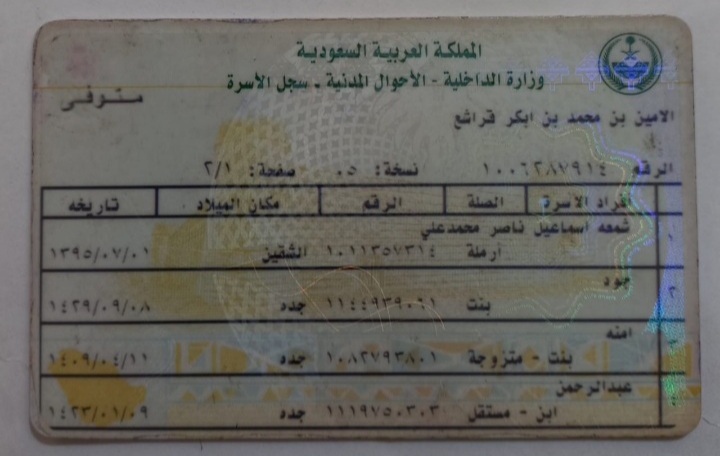 المملكة العربية السعودية
وزارة الداخلية - الأحوال المدنية - سجل الأسرة
متوفى
الامين بن محمد بن ابكر قراشع
الرقم ١٠٠٦٢٨٧٩١٤ نسخة: ٠٥ صفحة: ٢/١
أفراد الأسرة الصلة الرقم مكان الميلاد تاريخه
١ شمعه أسماعيل ناصر محمدعلي
أرملة ١٠١١٣٥٧٣١٤ الشقين ١٣٩٥/٠٧/٠١
٢ جود
بنت ١١٤٤٩٣٩٠٩١ جده ١٤٢٩/٠٩/٠٨
٣ امنه
بنت - متزوجة ١٠٨٢٧٩٣٨٠١ جده ١٤٠٩/٠٤/١١
٤ عبدالرحمن
ابن - مستقل ١١١٩٧٥٠٣٠٣ جده ١٤٢٣/٠١/٠٩